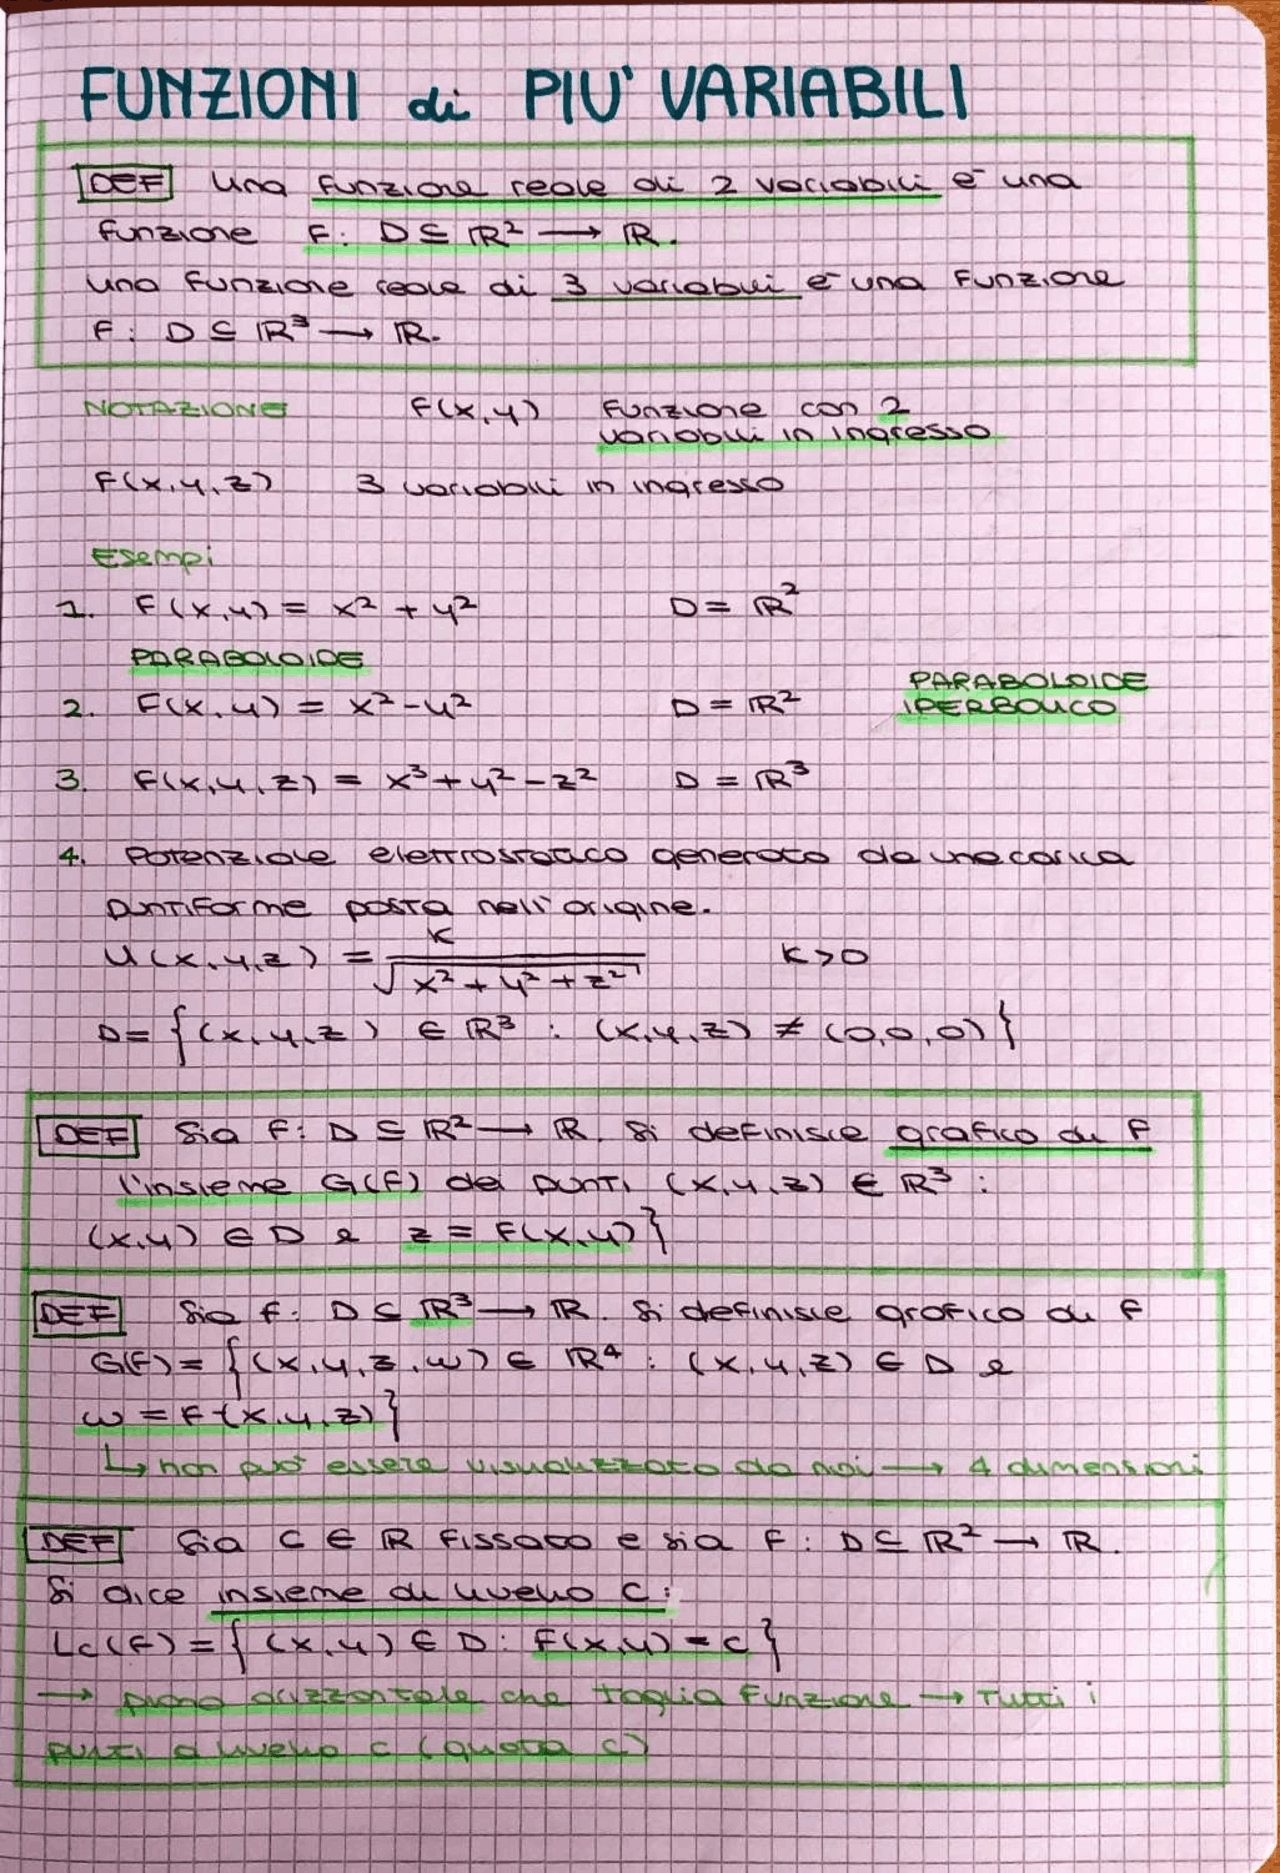 FUNZIONI di PIU' VARIABILI
DEF una funzione reale di 2 variabili è una
funzione F: D ⊆ ℝ² → ℝ.
una funzione reale di 3 variabili è una funzione
F: D ⊆ ℝ³ → ℝ.
NOTAZIONE F(x,y) funzione con 2
variabili in ingresso
F(x,y,z) 3 variabili in ingresso
Esempi
1. F(x,y) = x² + y² D = ℝ²
PARABOLOIDE
2. F(x,y) = x² - y² D = ℝ² PARABOLOIDE
IPERBOLICO
3. F(x,y,z) = x³ + y² - z² D = ℝ³
4. Potenziale elettrostatico generato da una carica
puntiforme posta nell'origine.
U(x,y,z) = K / √(x² + y² + z²) K > 0
D = {(x,y,z) ∈ ℝ³ : (x,y,z) ≠ (0,0,0)}
DEF Sia F: D ⊆ ℝ² → ℝ. Si definisce grafico di F
l'insieme G(F) dei punti (x,y,z) ∈ ℝ³ :
(x,y) ∈ D e z = F(x,y)}
DEF Sia F: D ⊆ ℝ³ → ℝ. Si definisce grafico di F
G(F) = {(x,y,z,w) ∈ ℝ⁴ : (x,y,z) ∈ D e
w = F(x,y,z)}
↳ non può essere visualizzato da noi → 4 dimensioni
DEF Sia C ∈ ℝ fissato e sia F: D ⊆ ℝ² → ℝ.
Si dice insieme di livello C:
Lc(F) = {(x,y) ∈ D : F(x,y) = c}
→ piano orizzontale che taglia funzione → Tutti i
punti a livello c (quota c)